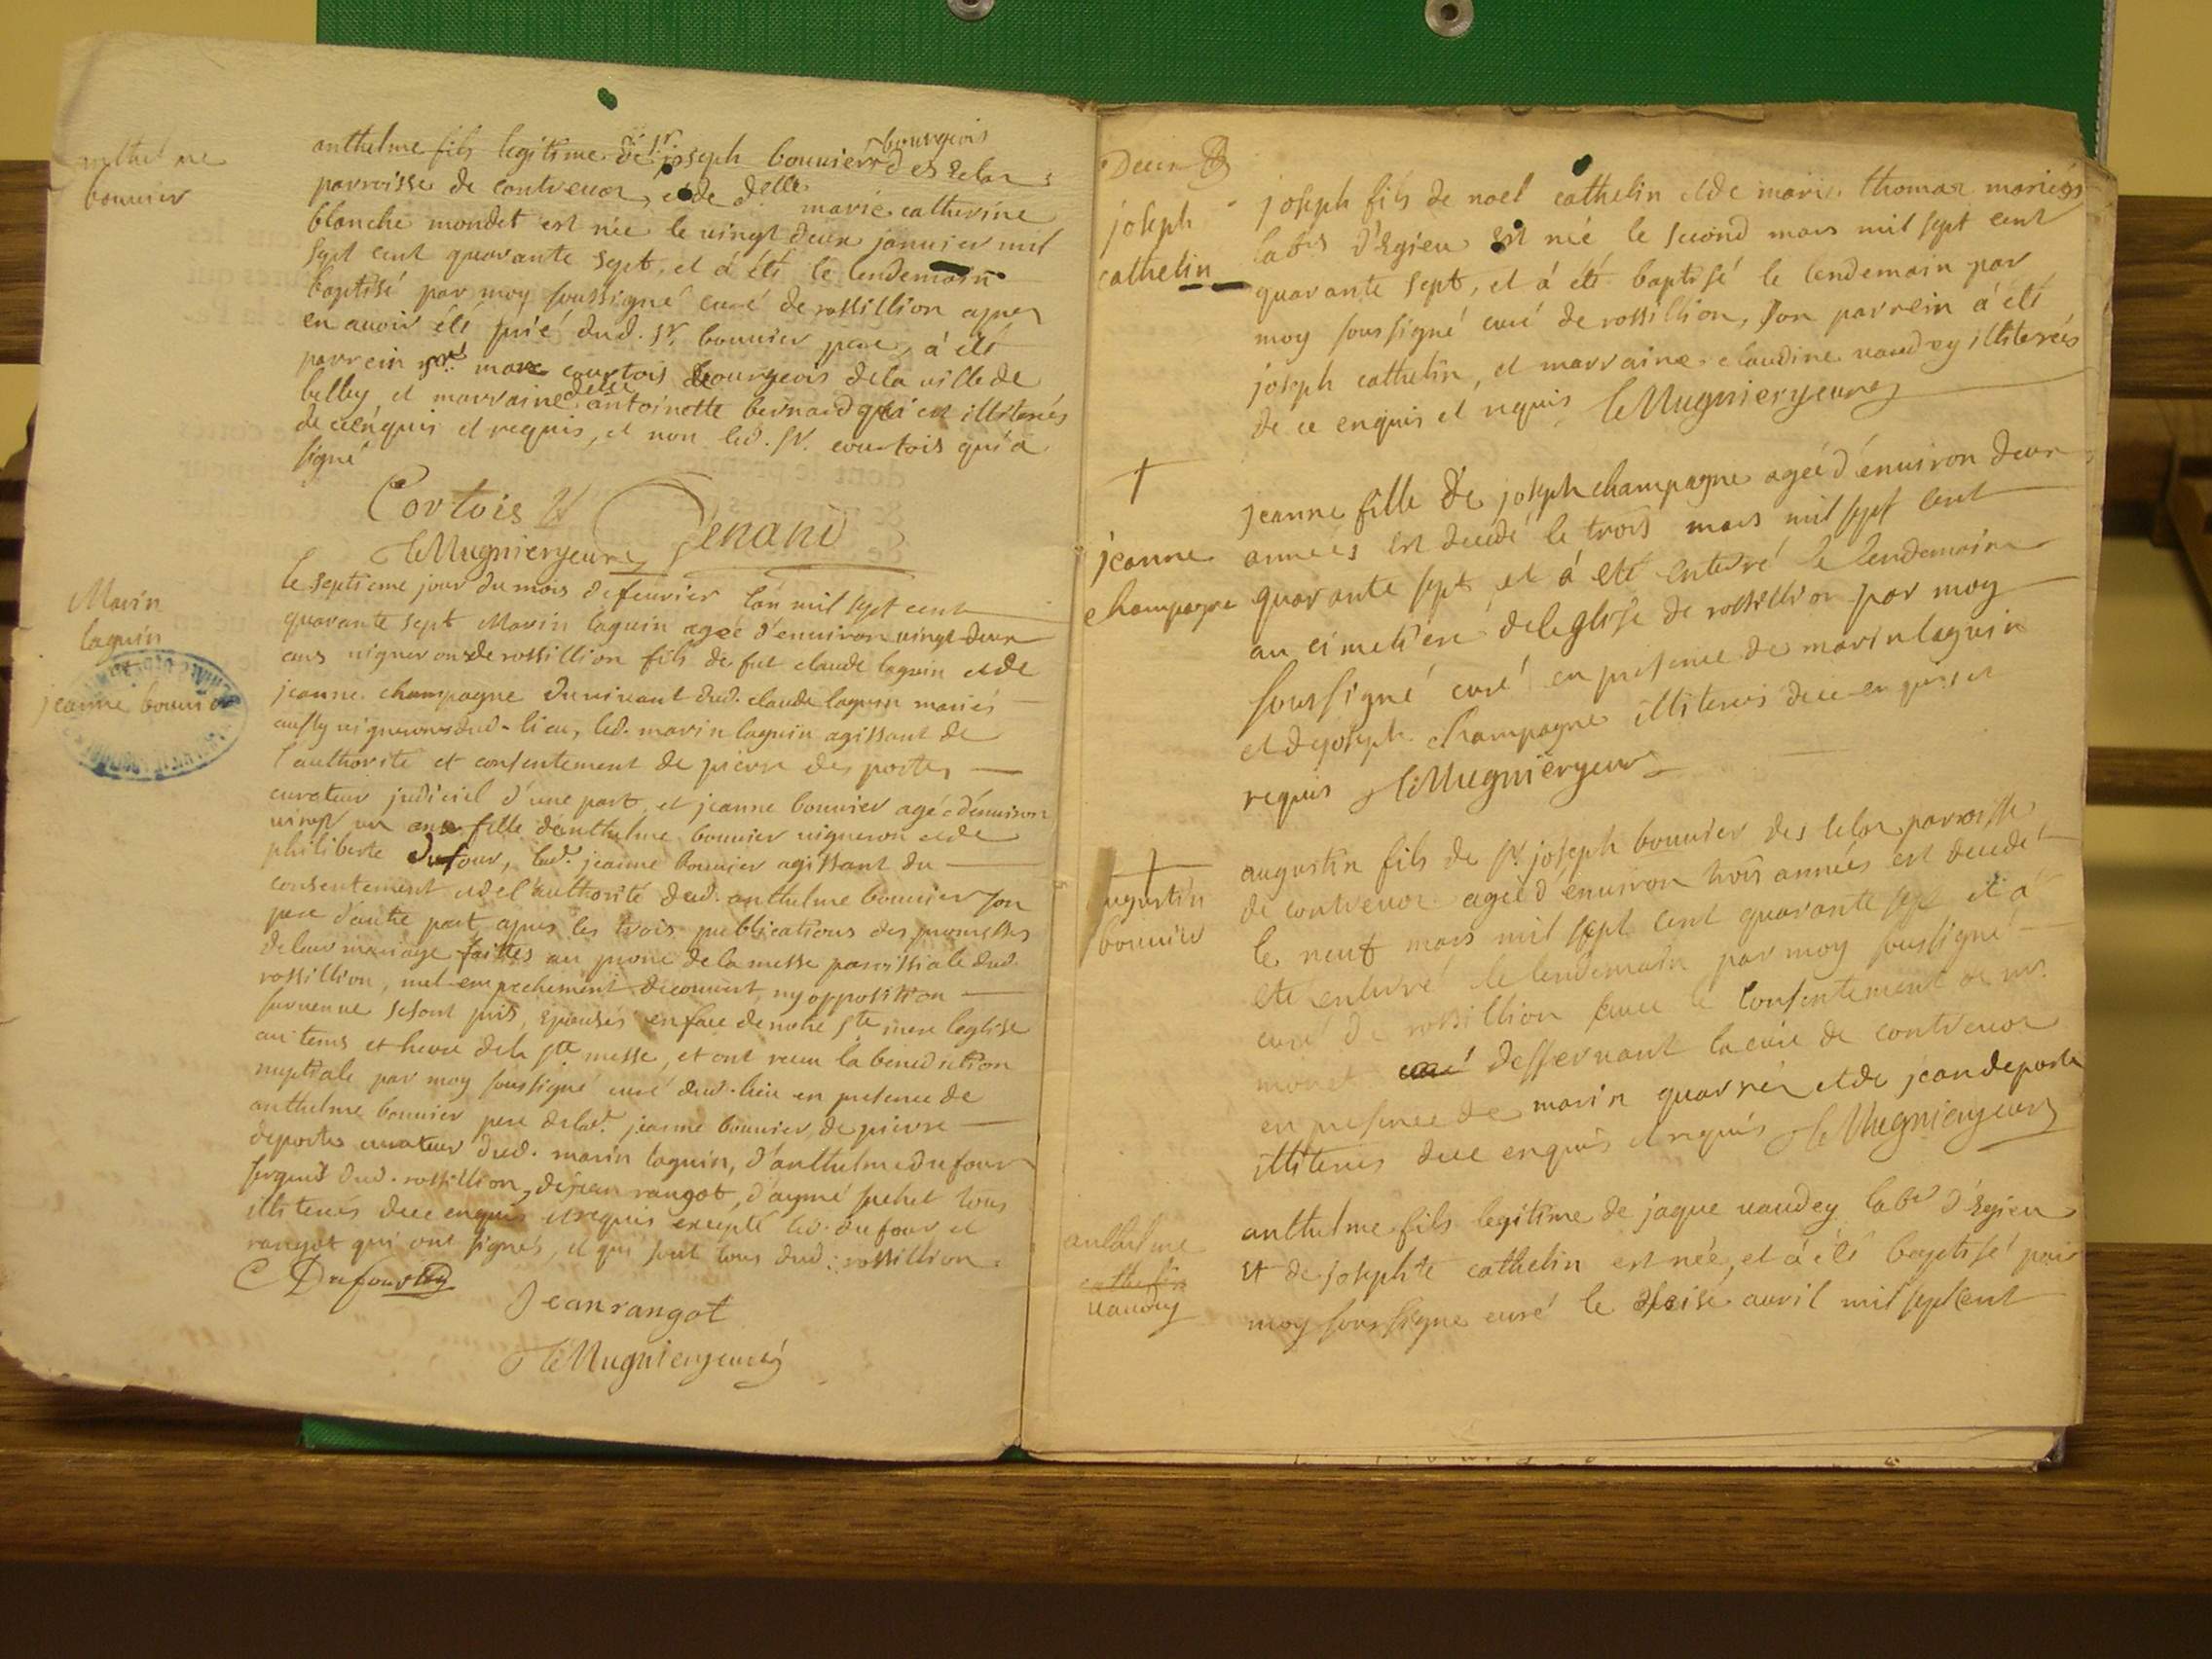 bouvier
anthelme fils legitime de Sr. joseph bouvier bourgeois des
parroisse de contrevoz, et de delle. marie catherine
blanche mondet est née le vingt deux janvier mil
sept cent quarante sept, et á été le lendemain
baptisé par moy soussigné curé de rossillion apres
en avoir été prié dud. sr. bouvier pere, á été
parrein sr. marc courtois bourgeois de la ville de
belley, et marraine delle antoinette bernard qui est illiterés
de ce enquis et requis, et non led. sr. courtois qui á
signé
Cortois
Le Mugnier jeune
Marin
laguin
jeanne bouvier
le septieme jour du mois de fevrier l'an mil sept cent
quarante sept Marin laguin agée d'environ vingt deux
ans vigneron de rossillion fils de fut claude laguin et de
jeanne champagne du vivant dud. claude laguin mariés
aussy vignerons dud. lieu, led. marin laguin agissant de
l'authorité et consentement de pierre des portes
curateur judiciel d'une part, et jeanne bouvier agée d'environ
vingt un ans fille d'anthelme bouvier vigneron et de
philiberte Dufour, lad. jeanne bouvier agissant du
consentement et de l'authorité dud. anthelme bouvier son
pere d'autre part, apres les trois publications des promesses
de leur mariage faittes au prone de la messe parroissiale dud.
rossillion, nul empechement decouvert, ny opposition
survenue se sont pris, epousés en face de notre ste mere leglise
au tems et heure de la ste messe, et ont receu la benediction
nuptiale par moy soussigné curé dud. lieu en presence de
anthelme bouvier pere de lad. jeanne bouvier, de pierre
deportes curateur dud. marin laguin, d'anthelme dufour
sergent dud. rossillion, de jean rangot, d'aymé suchet tous
illiterés de ce enquis et requis excepté led. dufour et
rangot qui ont signés, et qui sont tous dud: rossillion.
Dufour
Jean rangot
Le Mugnier jeune
Deux
joseph
cathelin
joseph fils de noel cathelin et de marie thomaz mariés
labrs d'Egieu est né le second mars mil sept cent
quarante sept, et á été baptisé le lendemain par
moy soussigné curé de rossillion, son parrein á été
joseph cathelin, et marraine claudine vaudey illiterés
de ce enquis et requis Le Mugnier jeune
jeanne
champagne
jeanne fille de joseph champagne agée d'environ deux
années est decedé le trois mars mil sept cent
quarante sept et á eté enterré le lendemain
au cimetiere de leglise de rossillion par moy
soussigné curé en presence de marin laguin
et de joseph champagne illiterés de ce enquis et
requis Le Mugnier jeune
augustin
bouvier
augustin fils de sr. joseph bouvier des parroisse
de contrevoz agée d'environ trois années est decedé
le neuf mars mil sept cent quarante sept et á
eté enterré le lendemain par moy soussigné
curé de rossillion avec le consentement de mr.
monet curé desservant la cure de contrevoz
en presence de marin quarrer et de jean deporte
illiterés de ce enquis et requis Le Mugnier jeune
anthelme
cathelin
vaudey
anthelme fils legitime de jaque vaudey labr d'Egieu
et de josephte cathelin est née, et á été baptisé par
moy soussigné curé le avril mil sept cent